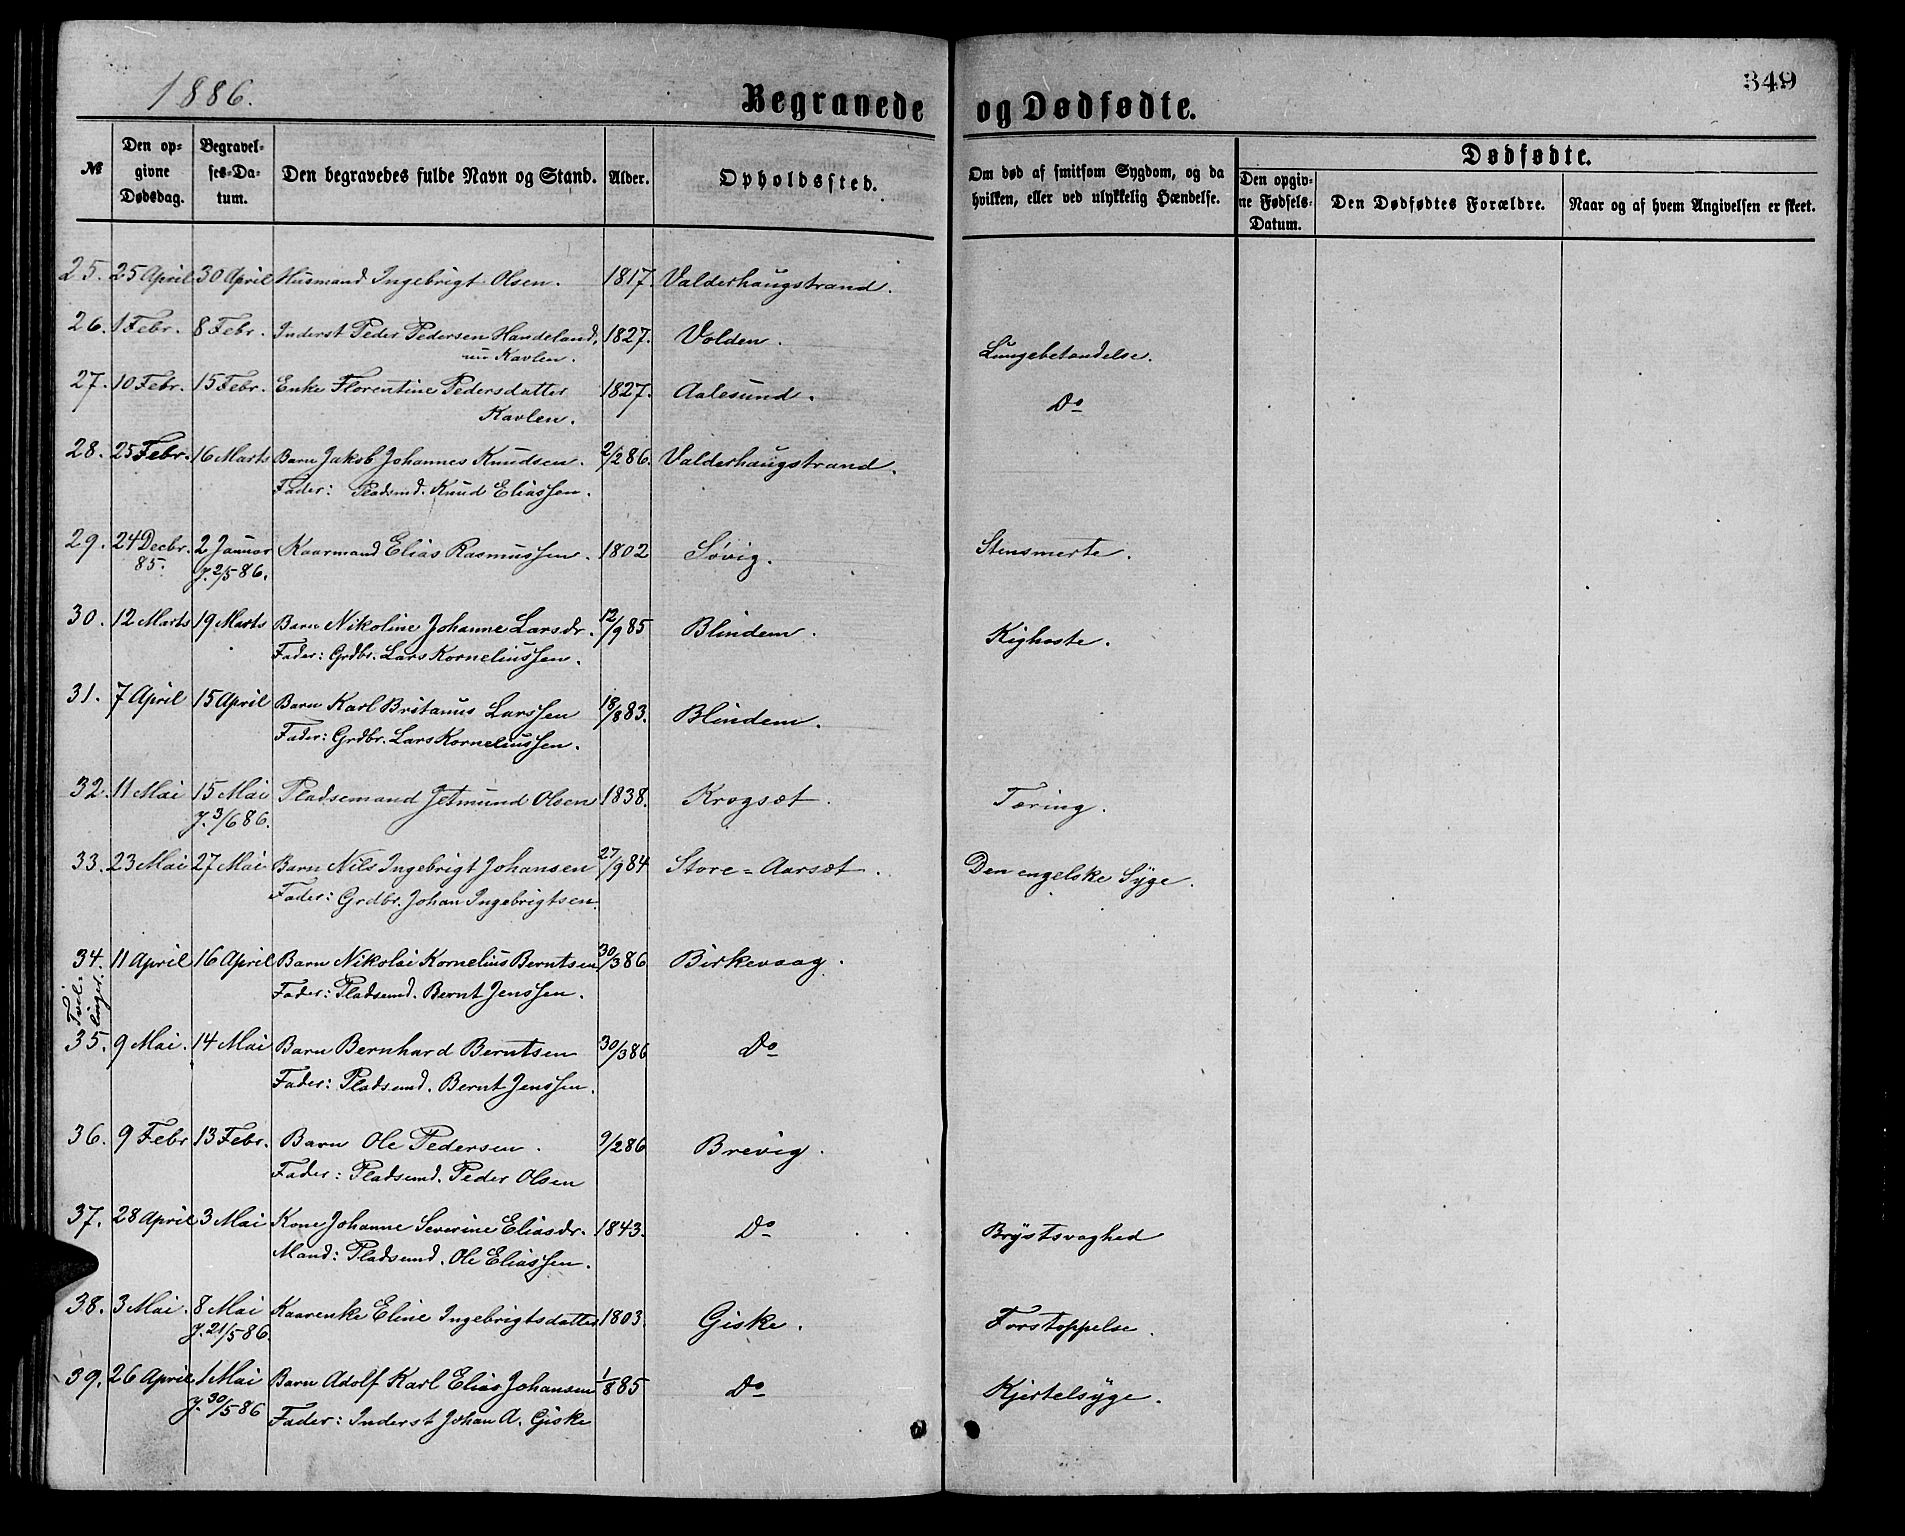 1886.
Begravede og Dødfødte.
349
№
Den opgivne Dødsdag.
Begravelses-Datum.
Den begravedes fulde Navn og Stand.
Alder.
Opholdssted.
Om død af smitsom Sygdom, og da hvilken, eller ved ulykkelig Hændelse.
Dødfødte.
Den opgivne Fødsels-Datum.
Den Dødfødtes Forældre.
Naar og af hvem Angivelsen er skeet.
25. 25 April 30 April Husmand Ingebrigt Olsen. 1817. Valderhaugstrand.
26. 1 Febr. 8 Febr. Inderst Peder Pedersen Handeland, 1827. Volden. Lungebetendelse.
Kavlen.
27. 10 Febr. 15 Febr. Enke Florentine Pedersdatter 1827. Aalesund. Do
Kavlen.
28. 25 Febr. 16 Marts Barn Jakob Johannes Knudsen. 2/2 86. Valderhaugstrand.
Fader: Pladsmd. Knud Eliassen.
29. 24 Decbr. 2 Januar Kaarmand Elias Rasmussen. 1802 Søvig. Stensmerte.
85. J. 2/5 86.
30. 12 Marts 19 Marts Barn Nikoline Johanne Larsdr. 12/9 85 Blindem. Kighoste.
Fader: Grdbr. Lars Korneliussen.
31. 7 April 15 April Barn Karl Britanus Larssen 18/8 83. Blindem.
Fader: Grdbr. Lars Korneliussen.
32. 11 Mai 15 Mai Pladsemand Jetmund Olsen 1838. Krogsæt. Tæring.
J. 3/6 86.
33. 23 Mai 27 Mai Barn Nils Ingebrigt Johansen 27/9 84 Store=Aarsæt. Den engelske Syge.
Fader: Grdbr. Johan Ingebrigtsen.
34. 11 April 16 April Barn Nikolai Kornelius Berntsen 30/3 86 Birkevaag.
Fader: Pladsemd. Bernt Jenssen.
Tvillinger.
35. 9 Mai. 14 Mai Barn Bernhard Berntsen 30/3 86 Do
Fader: Pladsemd. Bernt Jenssen.
36. 9 Febr 13 Febr. Barn Ole Pedersen. 9/2 86 Brevig.
Fader: Pladsemd. Peder Olsen
37. 28 April 3 Mai Kone Johanne Severine Eliasdr. 1843. Do Brystsvaghed
Mand: Pladsemd. Ole Eliassen.
38. 3 Mai. 8 Mai Kaarenke Eline Ingebrigtsdatter 1803. Giske. Forstoppelse.
J. 21/5 86.
39. 26 April 1 Mai Barn Adolf Karl Elias Johansen 1/8 85 Do Kjertelsyge.
J. 30/5 86 Fader: Inderst Johan A. Giske